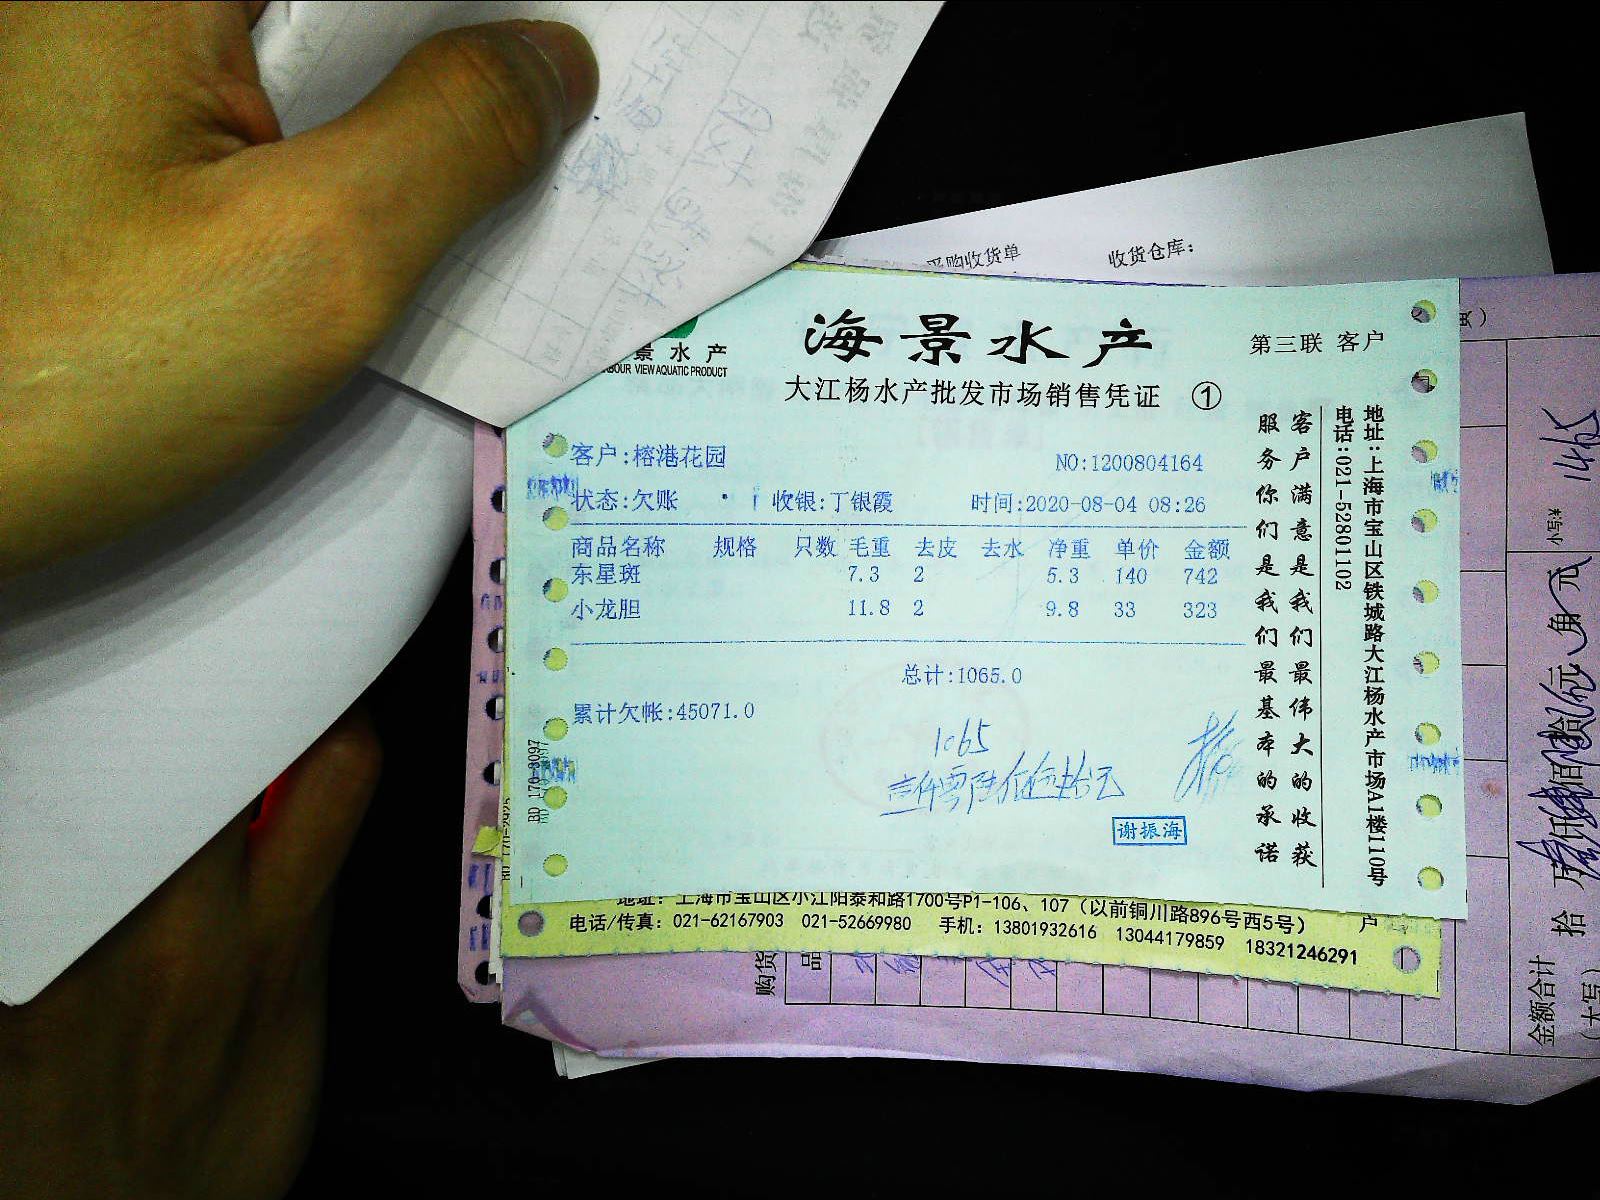 采购收货单 收货仓库:
景水产
BOUR VIEW AQUATIC PRODUCT
海景水产
第三联 客户
大江杨水产批发市场销售凭证 ①
客户:榕港花园 NO:1200804164
状态:欠账 收银:丁银霞 时间:2020-08-04 08:26
商品名称 规格 只数 毛重 去皮 去水 净重 单价 金额
东星斑 7.3 2 5.3 140 742
小龙胆 11.8 2 9.8 33 323
总计:1065.0
累计欠帐:45071.0
1065
谢振海
客户满意是我们最伟大的收获
服务你们是我们最基本的承诺
地址:上海市宝山区铁城路大江杨水产市场A1楼110号
电话:021-52801102
BD 170-3097
地址: 上海市宝山区小江阳泰和路1700号P1-106、107（以前铜川路896号西5号）
电话/传真: 021-62167903 021-52669980 手机: 13801932616 13044179859 18321246291
户
购货
品
金额合计
(大写)
拾
小写¥
1465